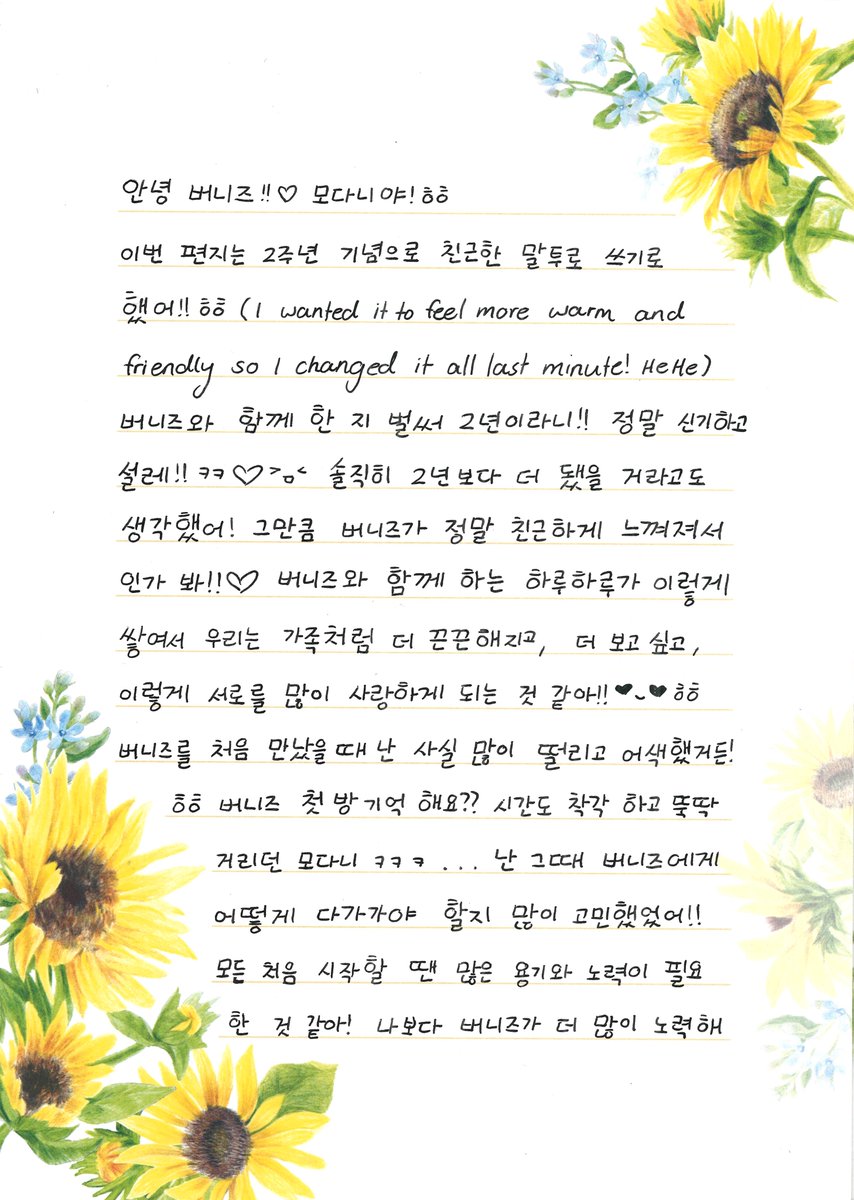 안녕 버니즈!!♡ 모다니야!ㅎㅎ
이번 편지는 2주년 기념으로 친근한 말투로 쓰기로
했어!! ㅎㅎ (I wanted it to feel more warm and
friendly so I changed it all last minute! HeHe)
버니즈와 함께 한 지 벌써 2년이라니!! 정말 신기하고
설레!! ㅋㅋ♡>ㅁ< 솔직히 2년보다 더 됐을 거라고도
생각했어! 그만큼 버니즈가 정말 친근하게 느껴져서
인가 봐!!♡ 버니즈와 함께 하는 하루하루가 이렇게
쌓여서 우리는 가족처럼 더 끈끈해지고, 더 보고 싶고,
이렇게 서로를 많이 사랑하게 되는 것 같아!!♥~♥ㅎㅎ
버니즈를 처음 만났을때 난 사실 많이 떨리고 어색했거든!
ㅎㅎ 버니즈 첫 방 기억 해요?? 시간도 착각 하고 뚝딱
거리던 모다니 ㅋㅋㅋ ... 난 그때 버니즈에게
어떻게 다가가야 할지 많이 고민했었어!!
모든 처음 시작할 땐 많은 용기와 노력이 필요
한 것 같아! 나보다 버니즈가 더 많이 노력해